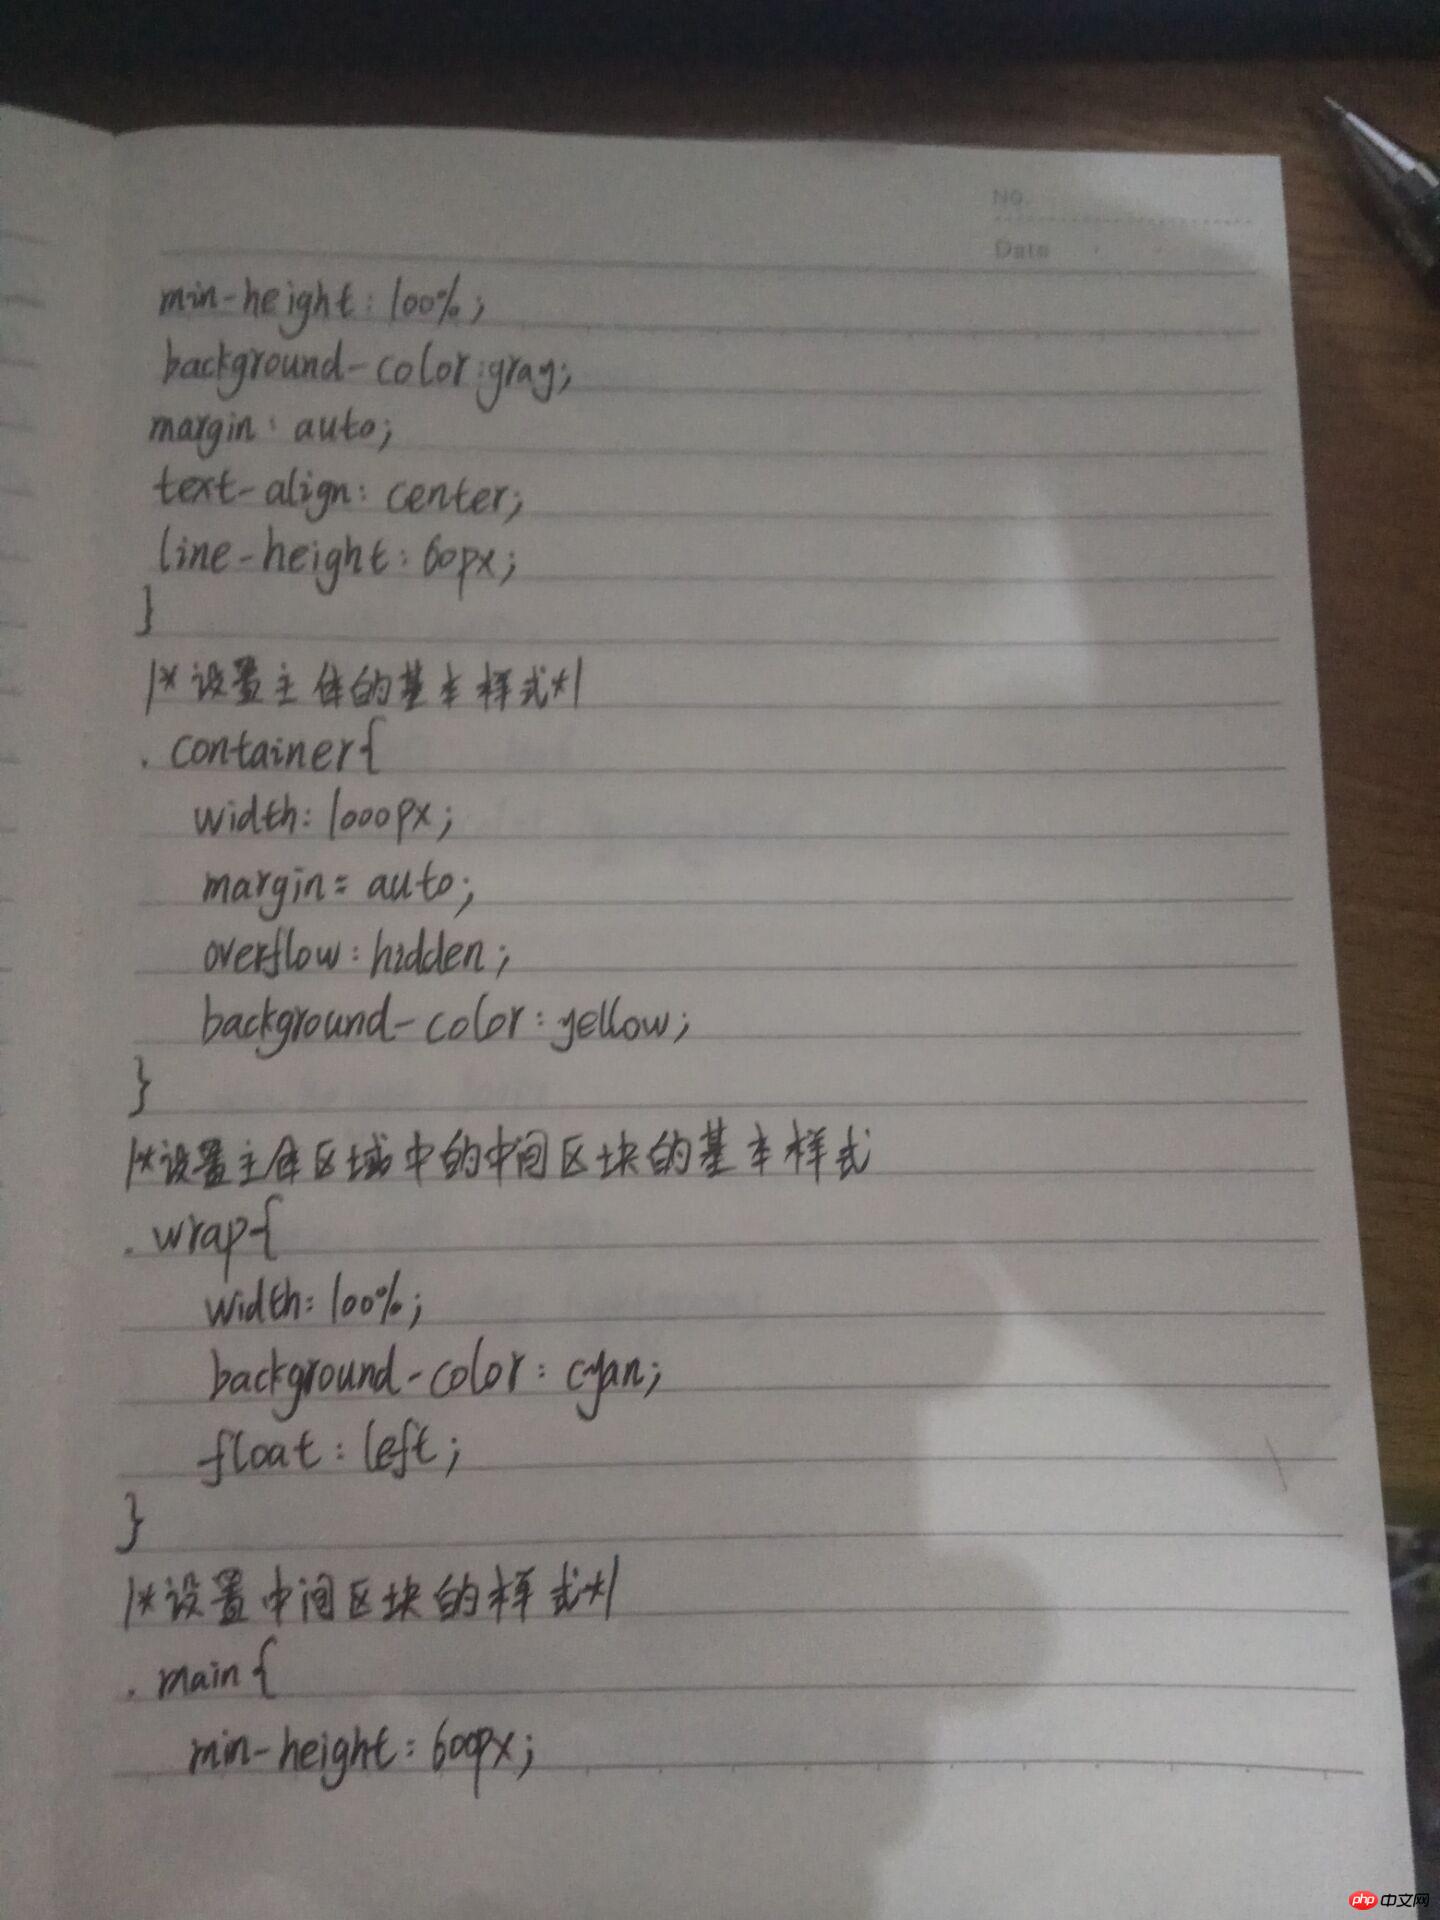 NO.
Date
min-height: 100%;
background-color:gray;
margin: auto;
text-align: center;
line-height: 60px;
}
/*设置主体的基本样式*/
.container{
width: 1000px;
margin: auto;
overflow: hidden;
background-color: yellow;
}
/*设置主体区域中的中间区块的基本样式
.wrap{
width: 100%;
background-color: cyan;
float: left;
}
/*设置中间区块的样式*/
.main{
min-height: 600px;
php中文网